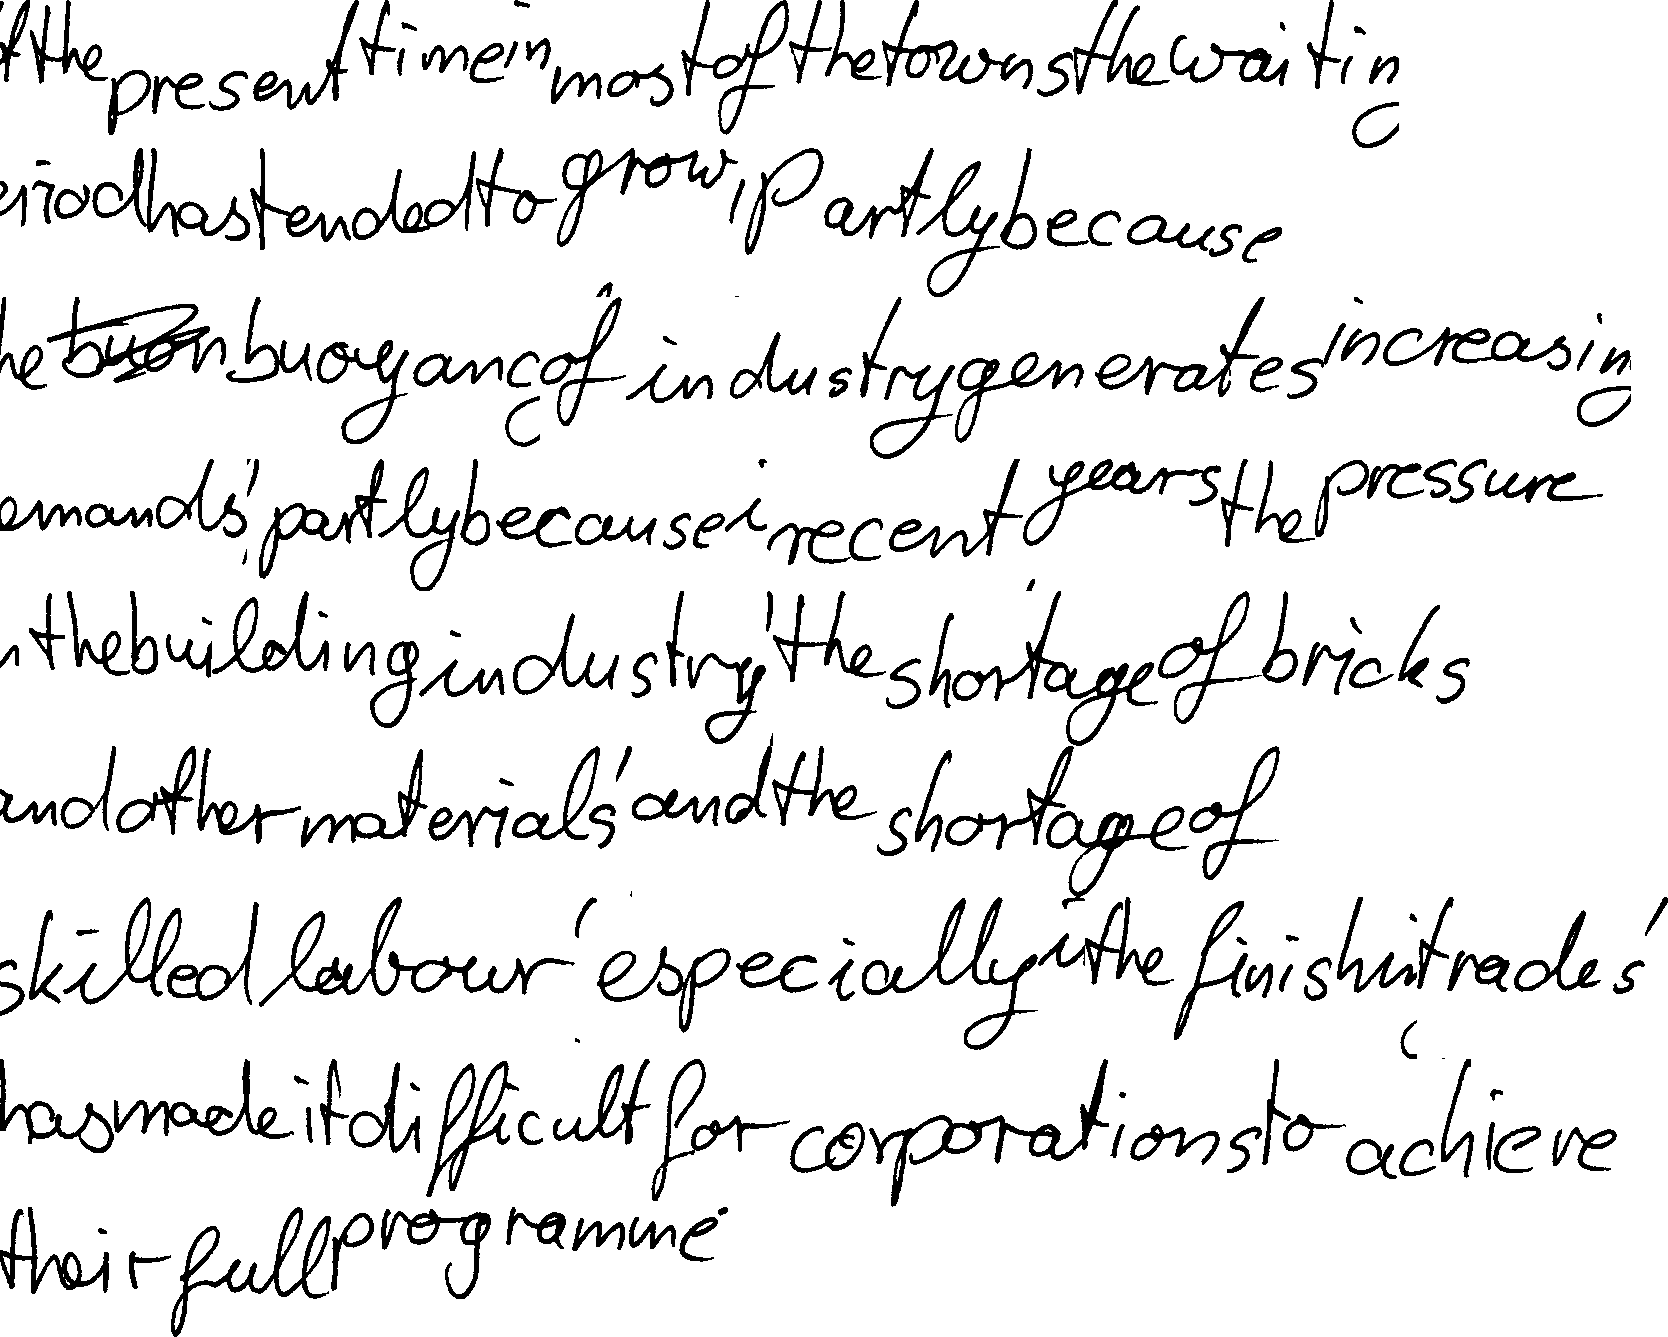 the present time in most of the towns the waiting
eriod has tended to grow, partly because
he buoyancy of industry generates increasing
emands, partly because i recent years the pressure
n the building industry, the shortage of bricks
and other materials, and the shortage of
skilled labour, especially i the finishing trades,
has made it difficult for corporations to achieve
their full programme